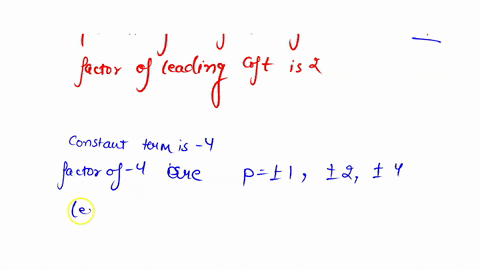 factor of leading Coft is 2
Constant term is -4
factor of -4 are p = ±1, ±2, ±4
(e